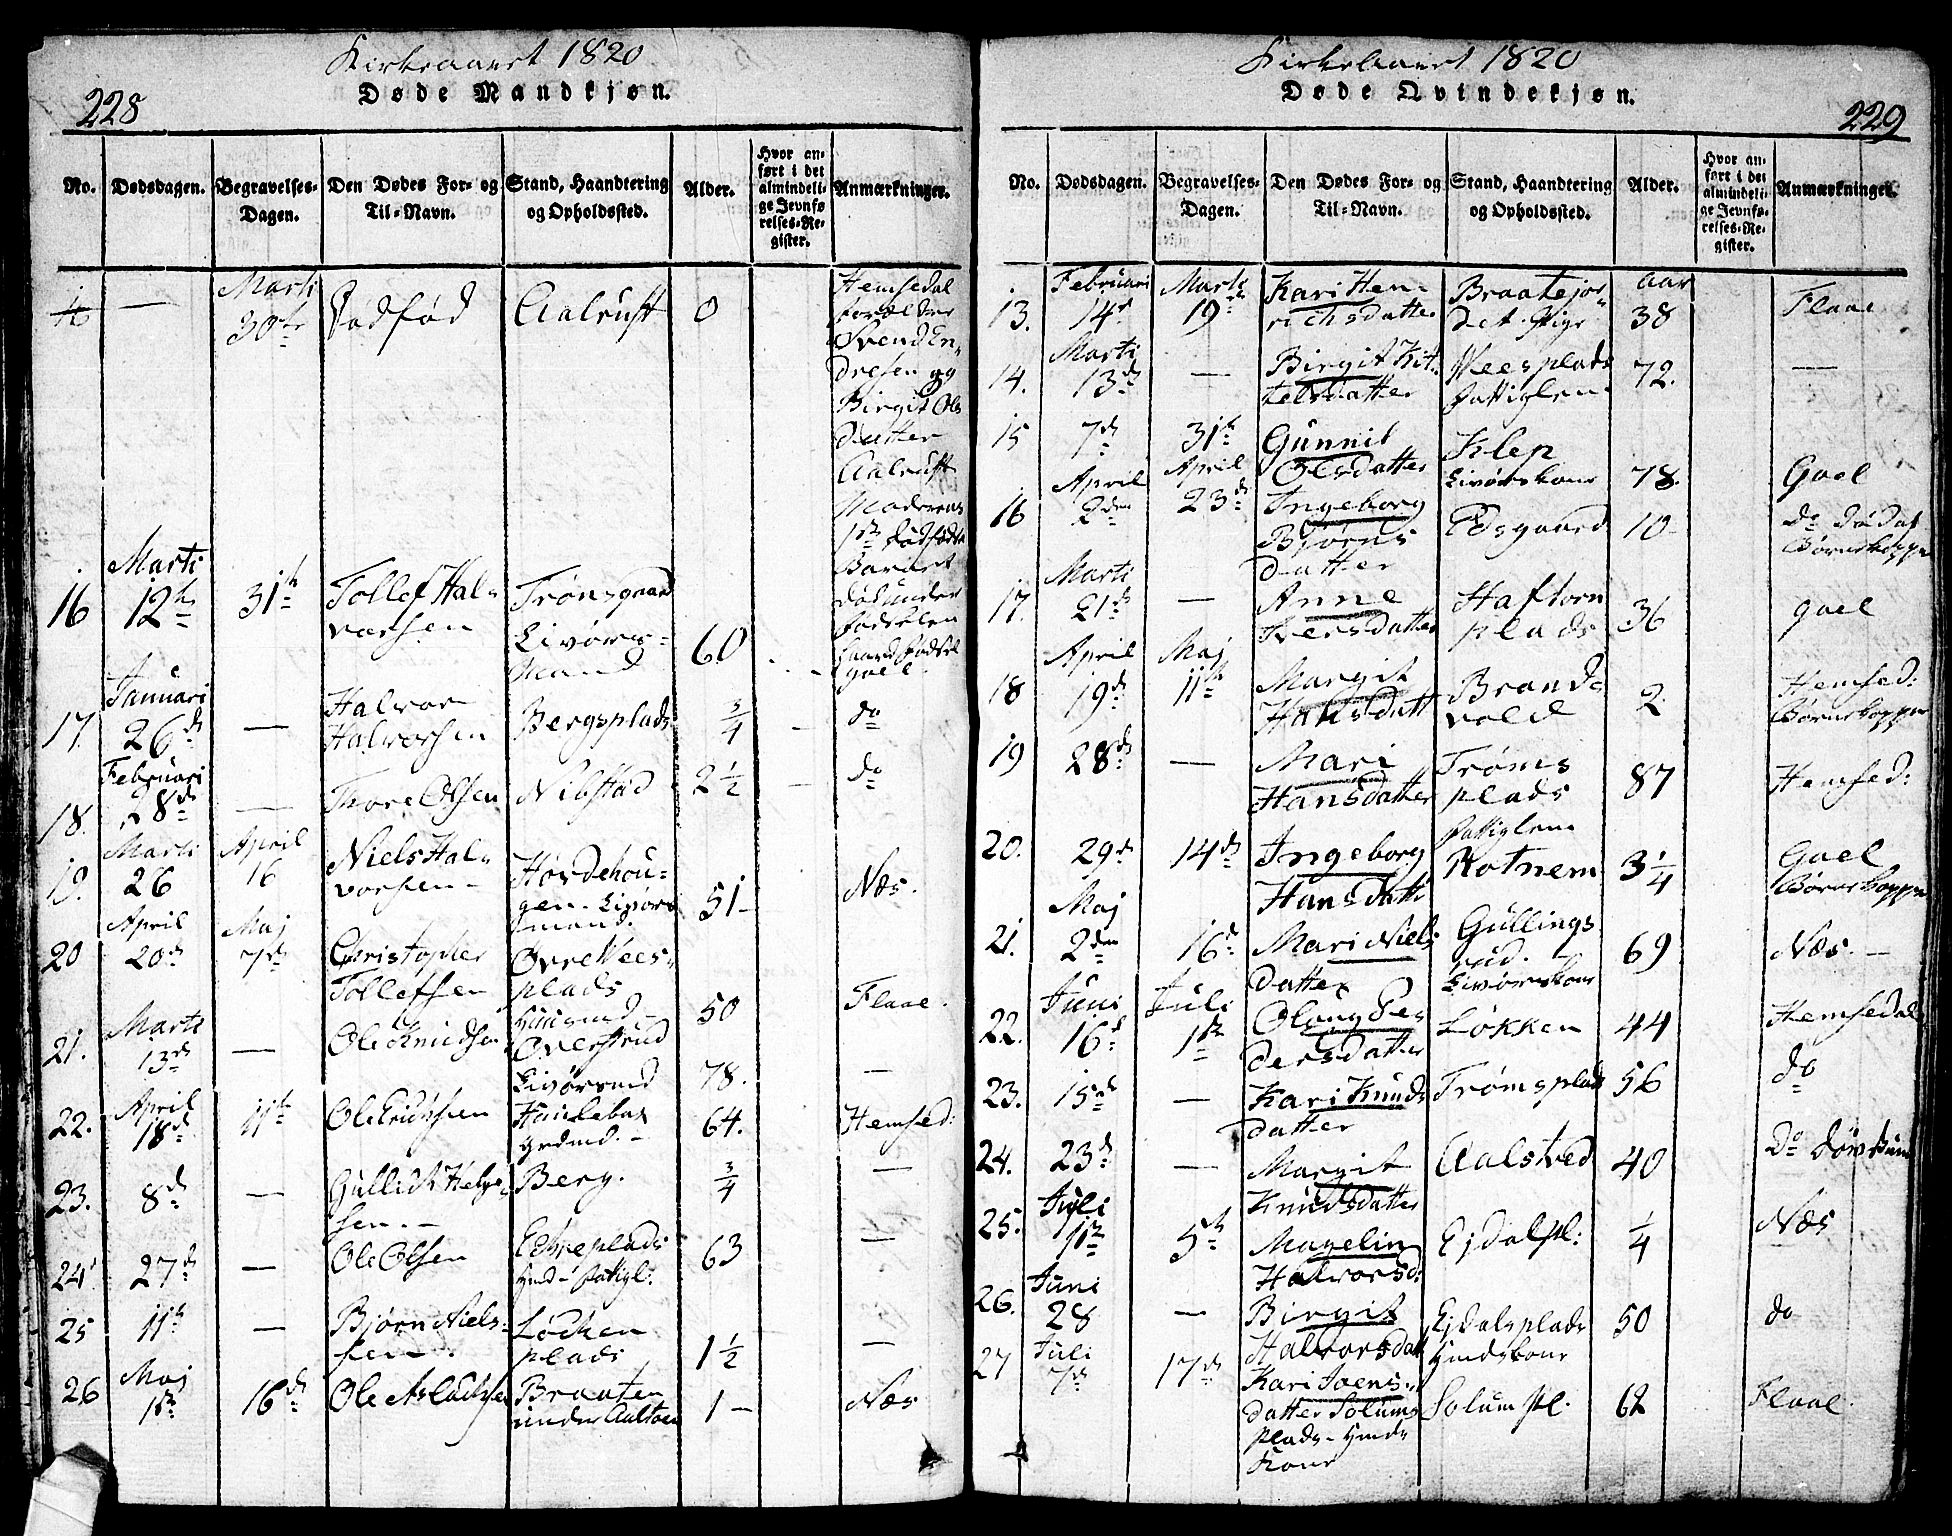 Kirkeaaret 1820
Døde Mandkjøn.
228
No.
Dødsdagen.
Begravelses-
Dagen.
Den Dødes For- og
Til-Navn.
Stand, Haandtering
og Opholdssted.
Alder.
Hvor an-
ført i det
almindeli-
ge Jevnfø-
relses-Re-
gister.
Anmærkninger.
— Marti 30te Dødfød Aalrust 0 Hemsedal
Forældre
Svend En-
dresen og
Birgit Ols
datter
Aalrust
Moderens
1ste dødfødte
Barnet
død under
Fødselen
haard Fødsel
16 Marti 12te 31te Tollef Hal-
vorsen Trønsgaard
Livøres-
Mand 60 Goel
17. Januari 26de — Halvor
Halvorsen Bergsplads 3/4 do
18. Februari 28de — Thore Olsen Nibstad 2 1/2 do
19. Marti 26 April 16 Niels Hal-
vorsen Hordehou-
gen. Livøres
mand. 51 Næs.
20 April 20de Maj 7de Christopher
Tollefsen Øvre Wees-
plads
Huusmd 50 Flaae.
21. Marti 13de — Ole Knudsen Overstrud
Livøresmd 78. —
22. April 18de 11te Ole Knudsen
Grdmd. 64. Hemsed:
23. 8de — Gullick Helge-
sen Berg. 3/4 —
24 27de — Ole Olsen
Hmd fattigl: 63 —
25 11te — Bjørn Niels-
sen. Løcken
plads 1 1/2 —
26 Maj 1ste 16de Ole Aslachsen Braaten
under Aaltoen 1 — Næs
Kirkeaaret 1820
Døde Qvindekjøn.
229
No.
Dødsdagen.
Begravelses-
Dagen.
Den Dødes For- og
Til-Navn.
Stand, Haandtering
og Opholdssted.
Alder.
Hvor an-
ført i det
almindeli-
ge Jevnfø-
relses-Re-
gister.
Anmærkninger.
13. Februari 14de Marti 19de Kari Hen-
richsdatter Braatejor-
det. Pige aar 38 Flaae
14. Marti 13de — Birgit Kit-
telsdatter Weesplads
Fattiglem 72. —
15 7de 31te Gunnil
Olsdatter Klep
Livørskone 78. Goel
16 April 2den April 23de Ingeborg
Bjørns
datter Edsgaard 10 do død af
Børnekopper
17. Marti 21de — Anne
Iversdatter Haftorn
plads 36 goel
18 April 19de Maj 11te Margit
Hansdatt Brand-
vold 2. Hemsed:
Børnekopper
19 28de — Mari
Hansdatter Trøms
plads
Fattiglem 87 Hemsed:
20. 29de 14de Ingeborg
Hansdattr Rotnem 3 1/4 Goel
Børnekopper
21. Maj 2den 16de Mari Niels
datter Gullings
rud.
Livørskone 69 Næs. —
22. Juni 16de Juli 1ste Olaug Pe-
dersdatter Løkken 44 Hemsedal
23. 15de — Kari Knuds
datter Trømsplads 56 do
24. 23de — Margit
Knudsdatter Aalstved 40 do
25. Juli 11te 5te Magelin
Halvorsd: Ejdalpl: 1/4 Næs
26. Juni 28 — Birgit
Halvorsdatt Ejdalsplads
Hmdskone 50 do
27 Juli 7de 17de Kari Joens-
datter Solums
plads Hmds
kone Solum pl. 62 Flaae.